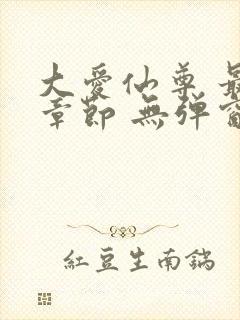 大愛仙尊 最
章節 無彈窗
紅豆生南鍋